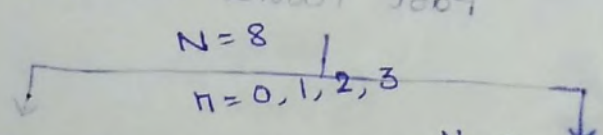 N = 8
n = 0, 1, 2, 3